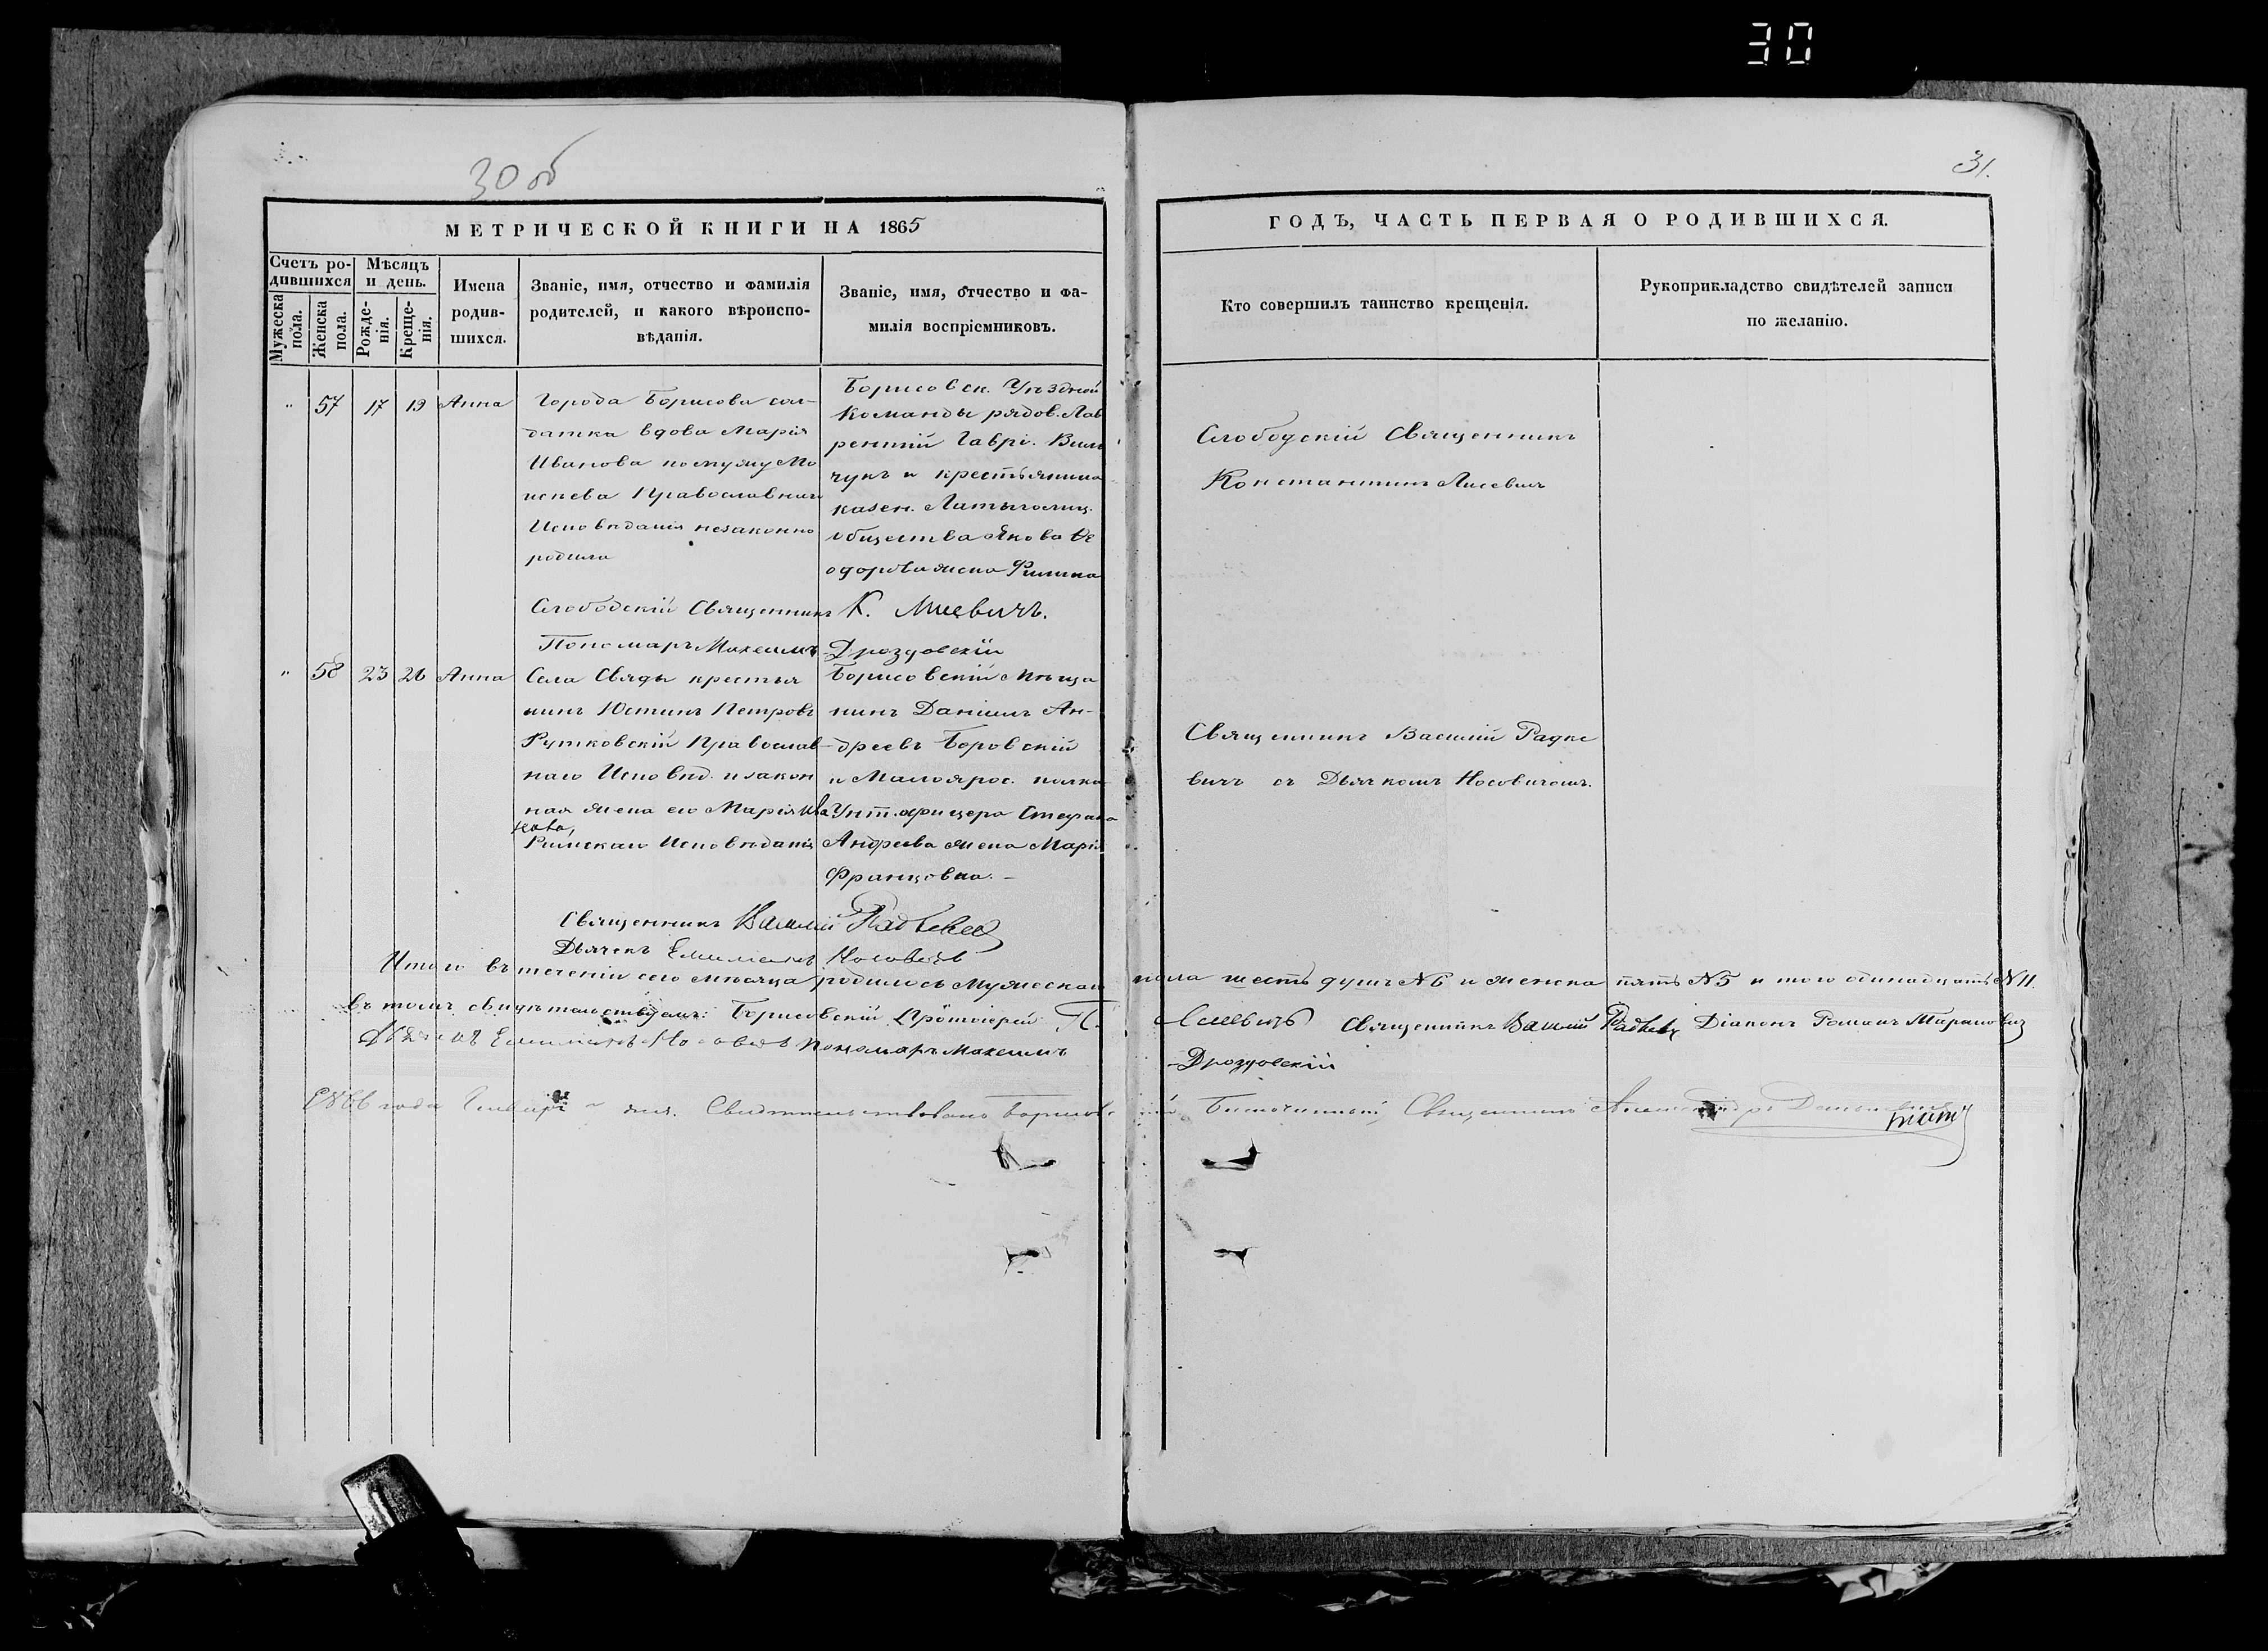 30
30 об
31.
МЕТРИЧЕСКОЙ КНИГИ НА 1865
ГОДЪ, ЧАСТЬ ПЕРВАЯ О РОДИВШИХСЯ.
Счетъ ро-
дившихся
Мужеска
пола.
Женска
пола.
Мѣсяцъ
и день.
Рожде-
нія.
Креще-
нія.
Имена
родив-
шихся.
Званіе, имя, отчество и фамилія
родителей, и какого вѣроиспо-
вѣданія.
Званіе, имя, отчество и фа-
милія воспріемниковъ.
Кто совершилъ таинство крещенія.
Рукоприкладство свидѣтелей записи
по желанію.
" 57 17 19 Анна
Города Борисова сол-
датка вдова Марія
Иванова по мужу Мо
Православнаго
Исповѣданія незаконно
родила
Борисовск. Уѣздной
Команды рядов. Лав
рентій Гаврі. Виль
чукъ и крестьянина
казен. Латыголиц.
общества Якова Ѳе
одорова жена
Слободскій Священникъ
Константинъ Лисевичъ
Слободскій Священникъ К. Лисевичъ.
Пономарь Максимъ Дроздовскій
" 58 23 26 Анна
Села Свяды крестья
нинъ Юстинъ Петровъ
Рутковскій Православ-
наго Исповѣд. и закон
ная жена его Марія Ива
нова,
Римскаго Исповѣданія
Борисовскій Мѣща
нинъ Даніилъ Ан-
дреевъ Боровскій
и Малоярос. полка
Унт. офицера Стефана
Андреева жена Марія
Францовна. -
Священникъ Василій Радке
вичъ съ Дьячкомъ Носовичемъ.
Священникъ Василій Радкевич
Дьячекъ Емиліанъ Носовичъ
Итого въ теченіи сего мѣсяца родилось Мужескаго пола шесть душъ №6 и женска пять №5 итого одинадцать №11.
въ томъ свидѣтельствуемъ: Борисовскій Протоіерей П. Лисевичъ Священникъ Василій Радкевич Діаконъ Романъ Мариновичъ
Дьячекъ Емиліанъ Носовичъ Пономарь Максимъ
Дроздовскій
1866 года Января дня. Свидѣтельствовалъ Борисовскій Благочинный, Священникъ Александръ